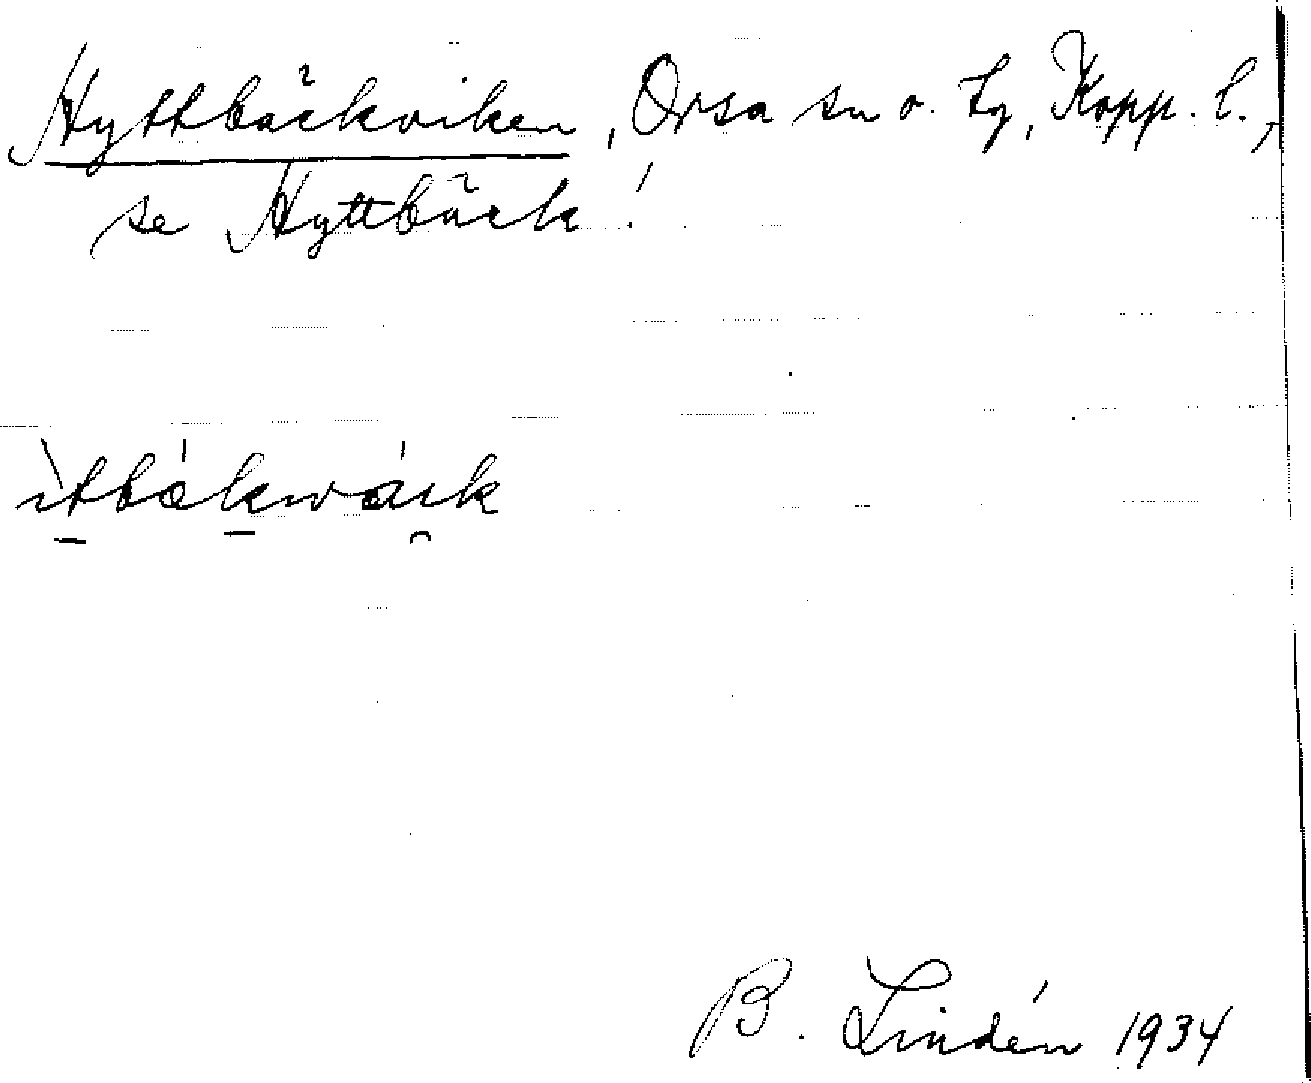 Hyttbäckviken, Orsa sn o. tg, Kopp. l.,
se Hyttbäck!
ìtbákwáik
B. Lindén 1934